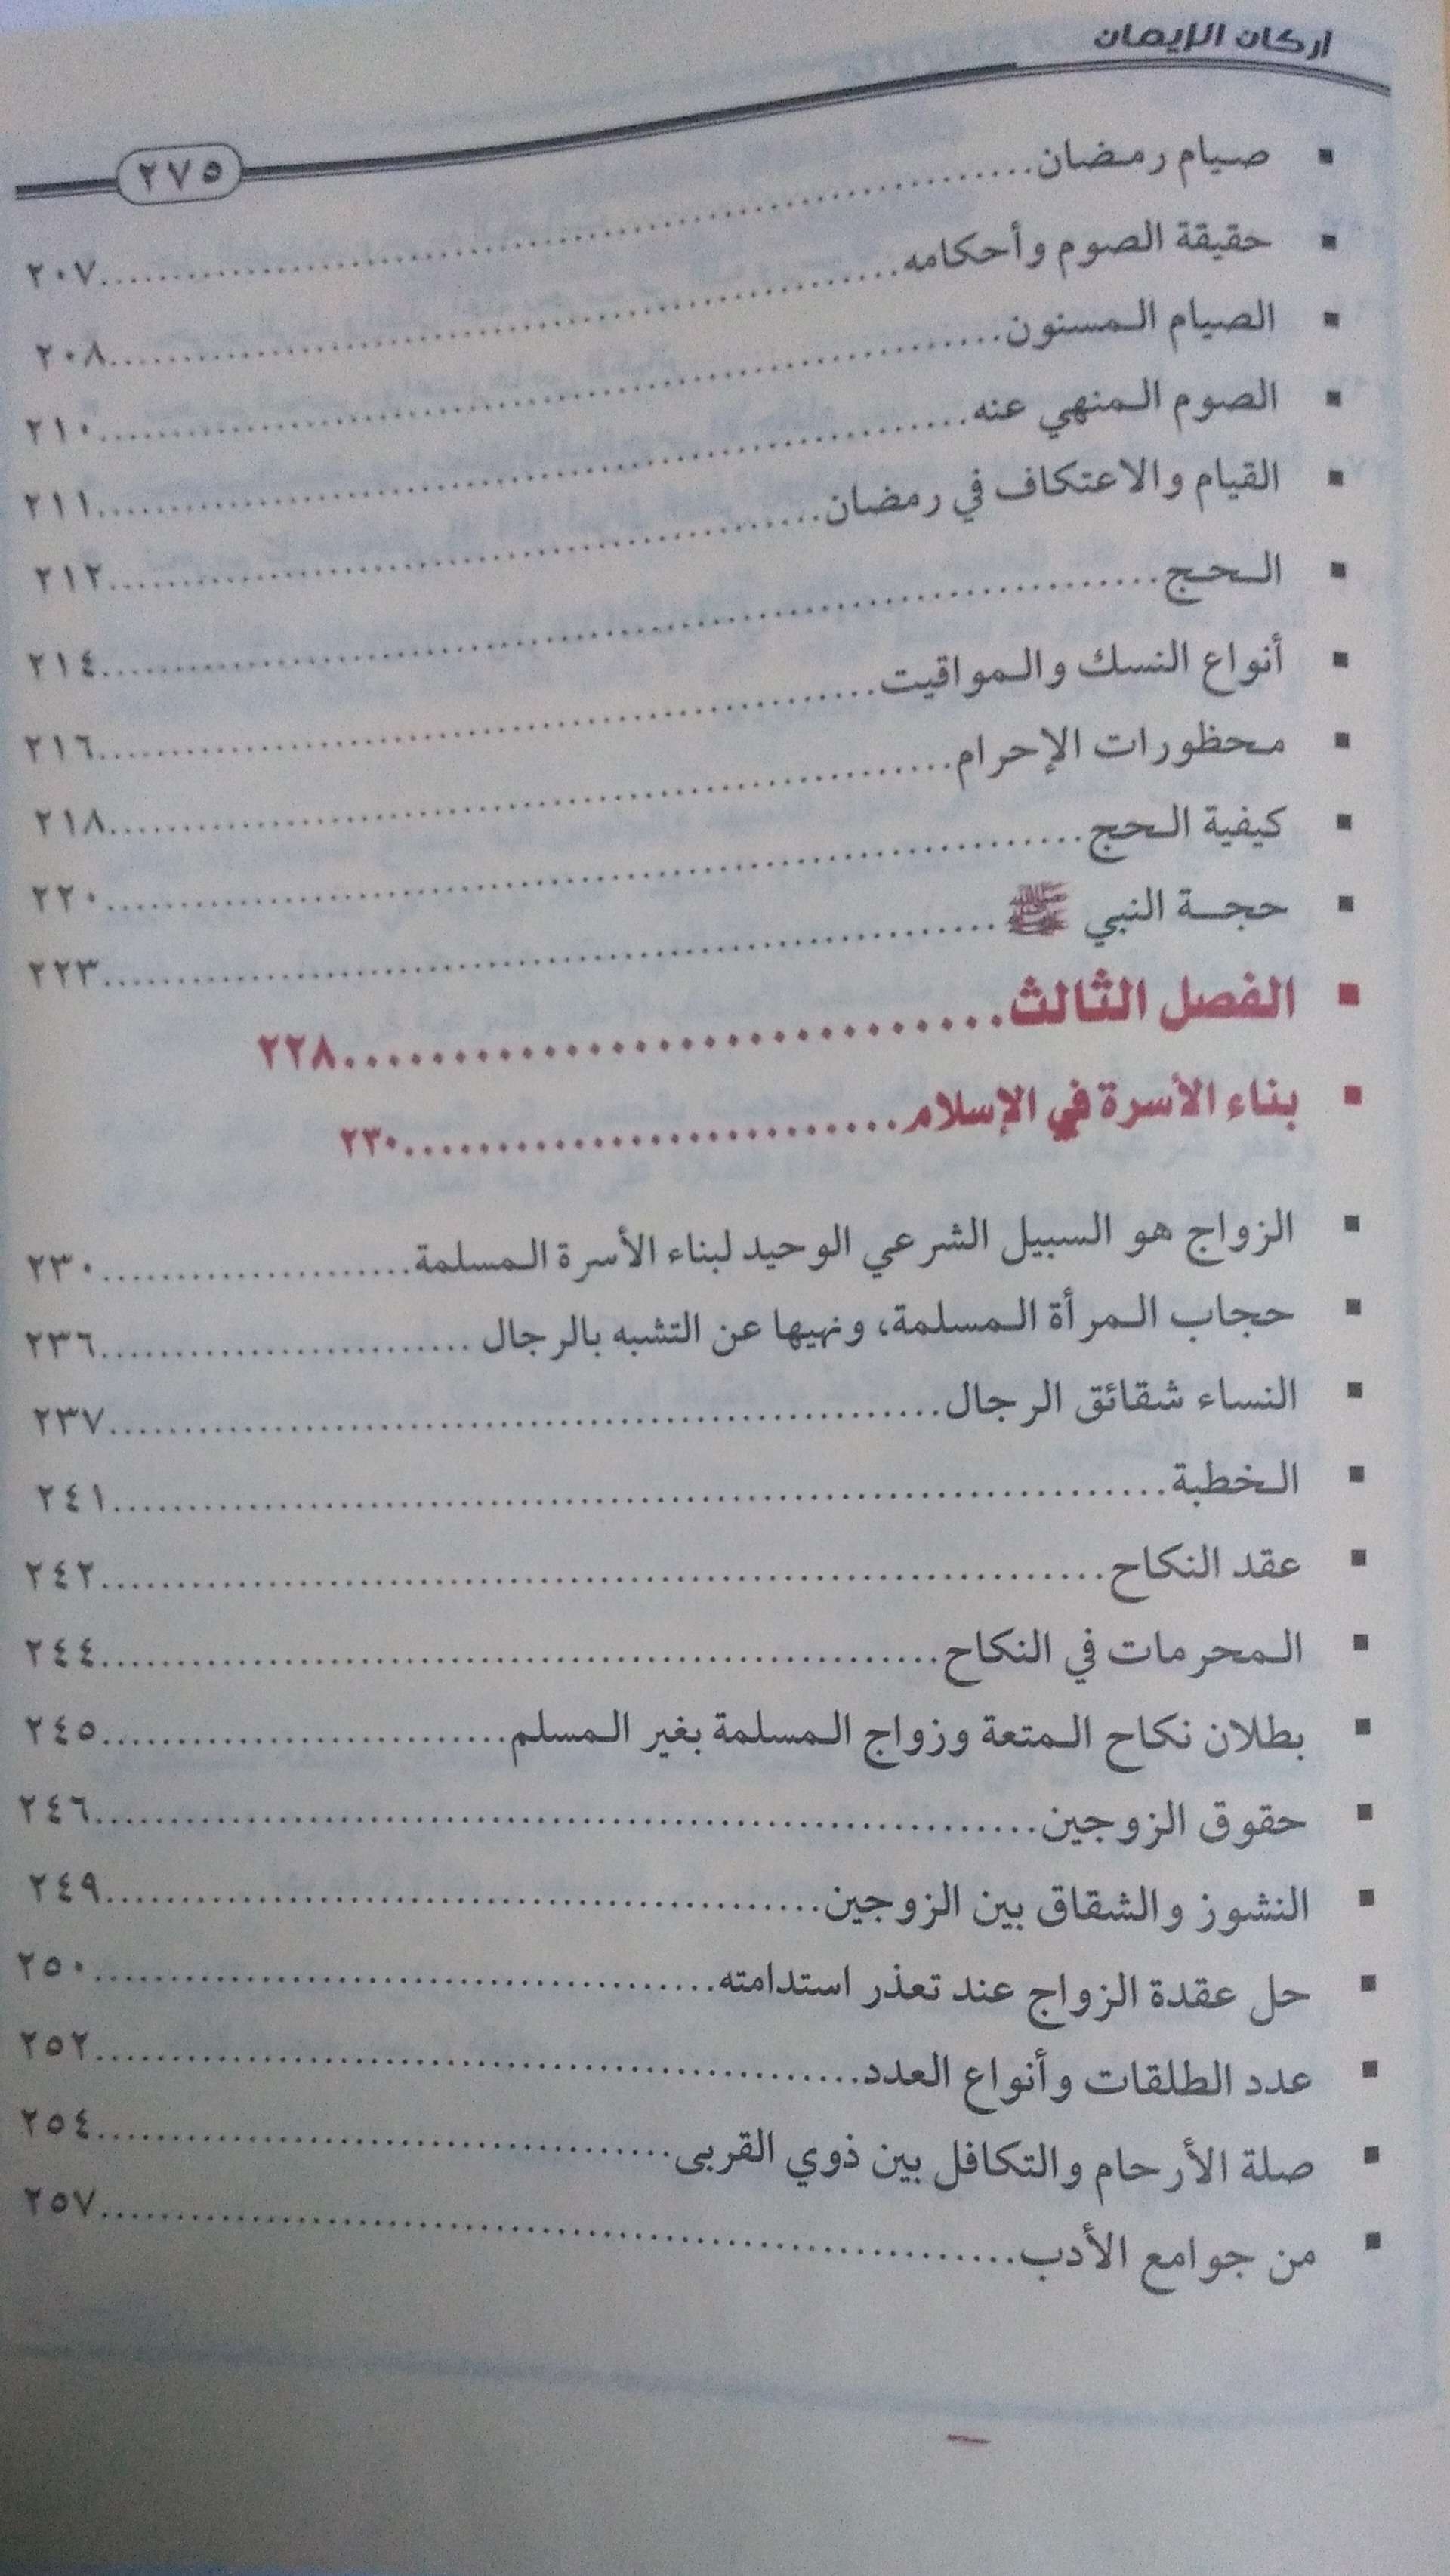 أركان الإيمان
٢٧٥
▪ صيام رمضان........................٢٠٧
▪ حقيقة الصوم وأحكامه........................٢٠٨
▪ الصيام المسنون........................٢١٠
▪ الصوم المنهي عنه........................٢١١
▪ القيام والاعتكاف في رمضان........................٢١٢
▪ الحج........................٢١٤
▪ أنواع النسك والمواقيت........................٢١٦
▪ محظورات الإحرام........................٢١٨
▪ كيفية الحج........................٢٢٠
▪ حجة النبي ﷺ........................٢٢٣
▪ الفصل الثالث........................٢٢٨
▪ بناء الأسرة في الإسلام........................٢٣٠
▪ الزواج هو السبيل الشرعي الوحيد لبناء الأسرة المسلمة........................٢٣٠
▪ حجاب المرأة المسلمة، ونهيها عن التشبه بالرجال ........................٢٣٦
▪ النساء شقائق الرجال........................٢٣٧
▪ الخطبة........................٢٤١
▪ عقد النكاح........................٢٤٢
▪ المحرمات في النكاح........................٢٤٤
▪ بطلان نكاح المتعة وزواج المسلمة بغير المسلم........................٢٤٥
▪ حقوق الزوجين........................٢٤٦
▪ النشوز والشقاق بين الزوجين........................٢٤٩
▪ حل عقدة الزواج عند تعذر استدامته........................٢٥٠
▪ عدد الطلقات وأنواع العدد........................٢٥٢
▪ صلة الأرحام والتكافل بين ذوي القربى........................٢٥٤
▪ من جوامع الأدب........................٢٥٧